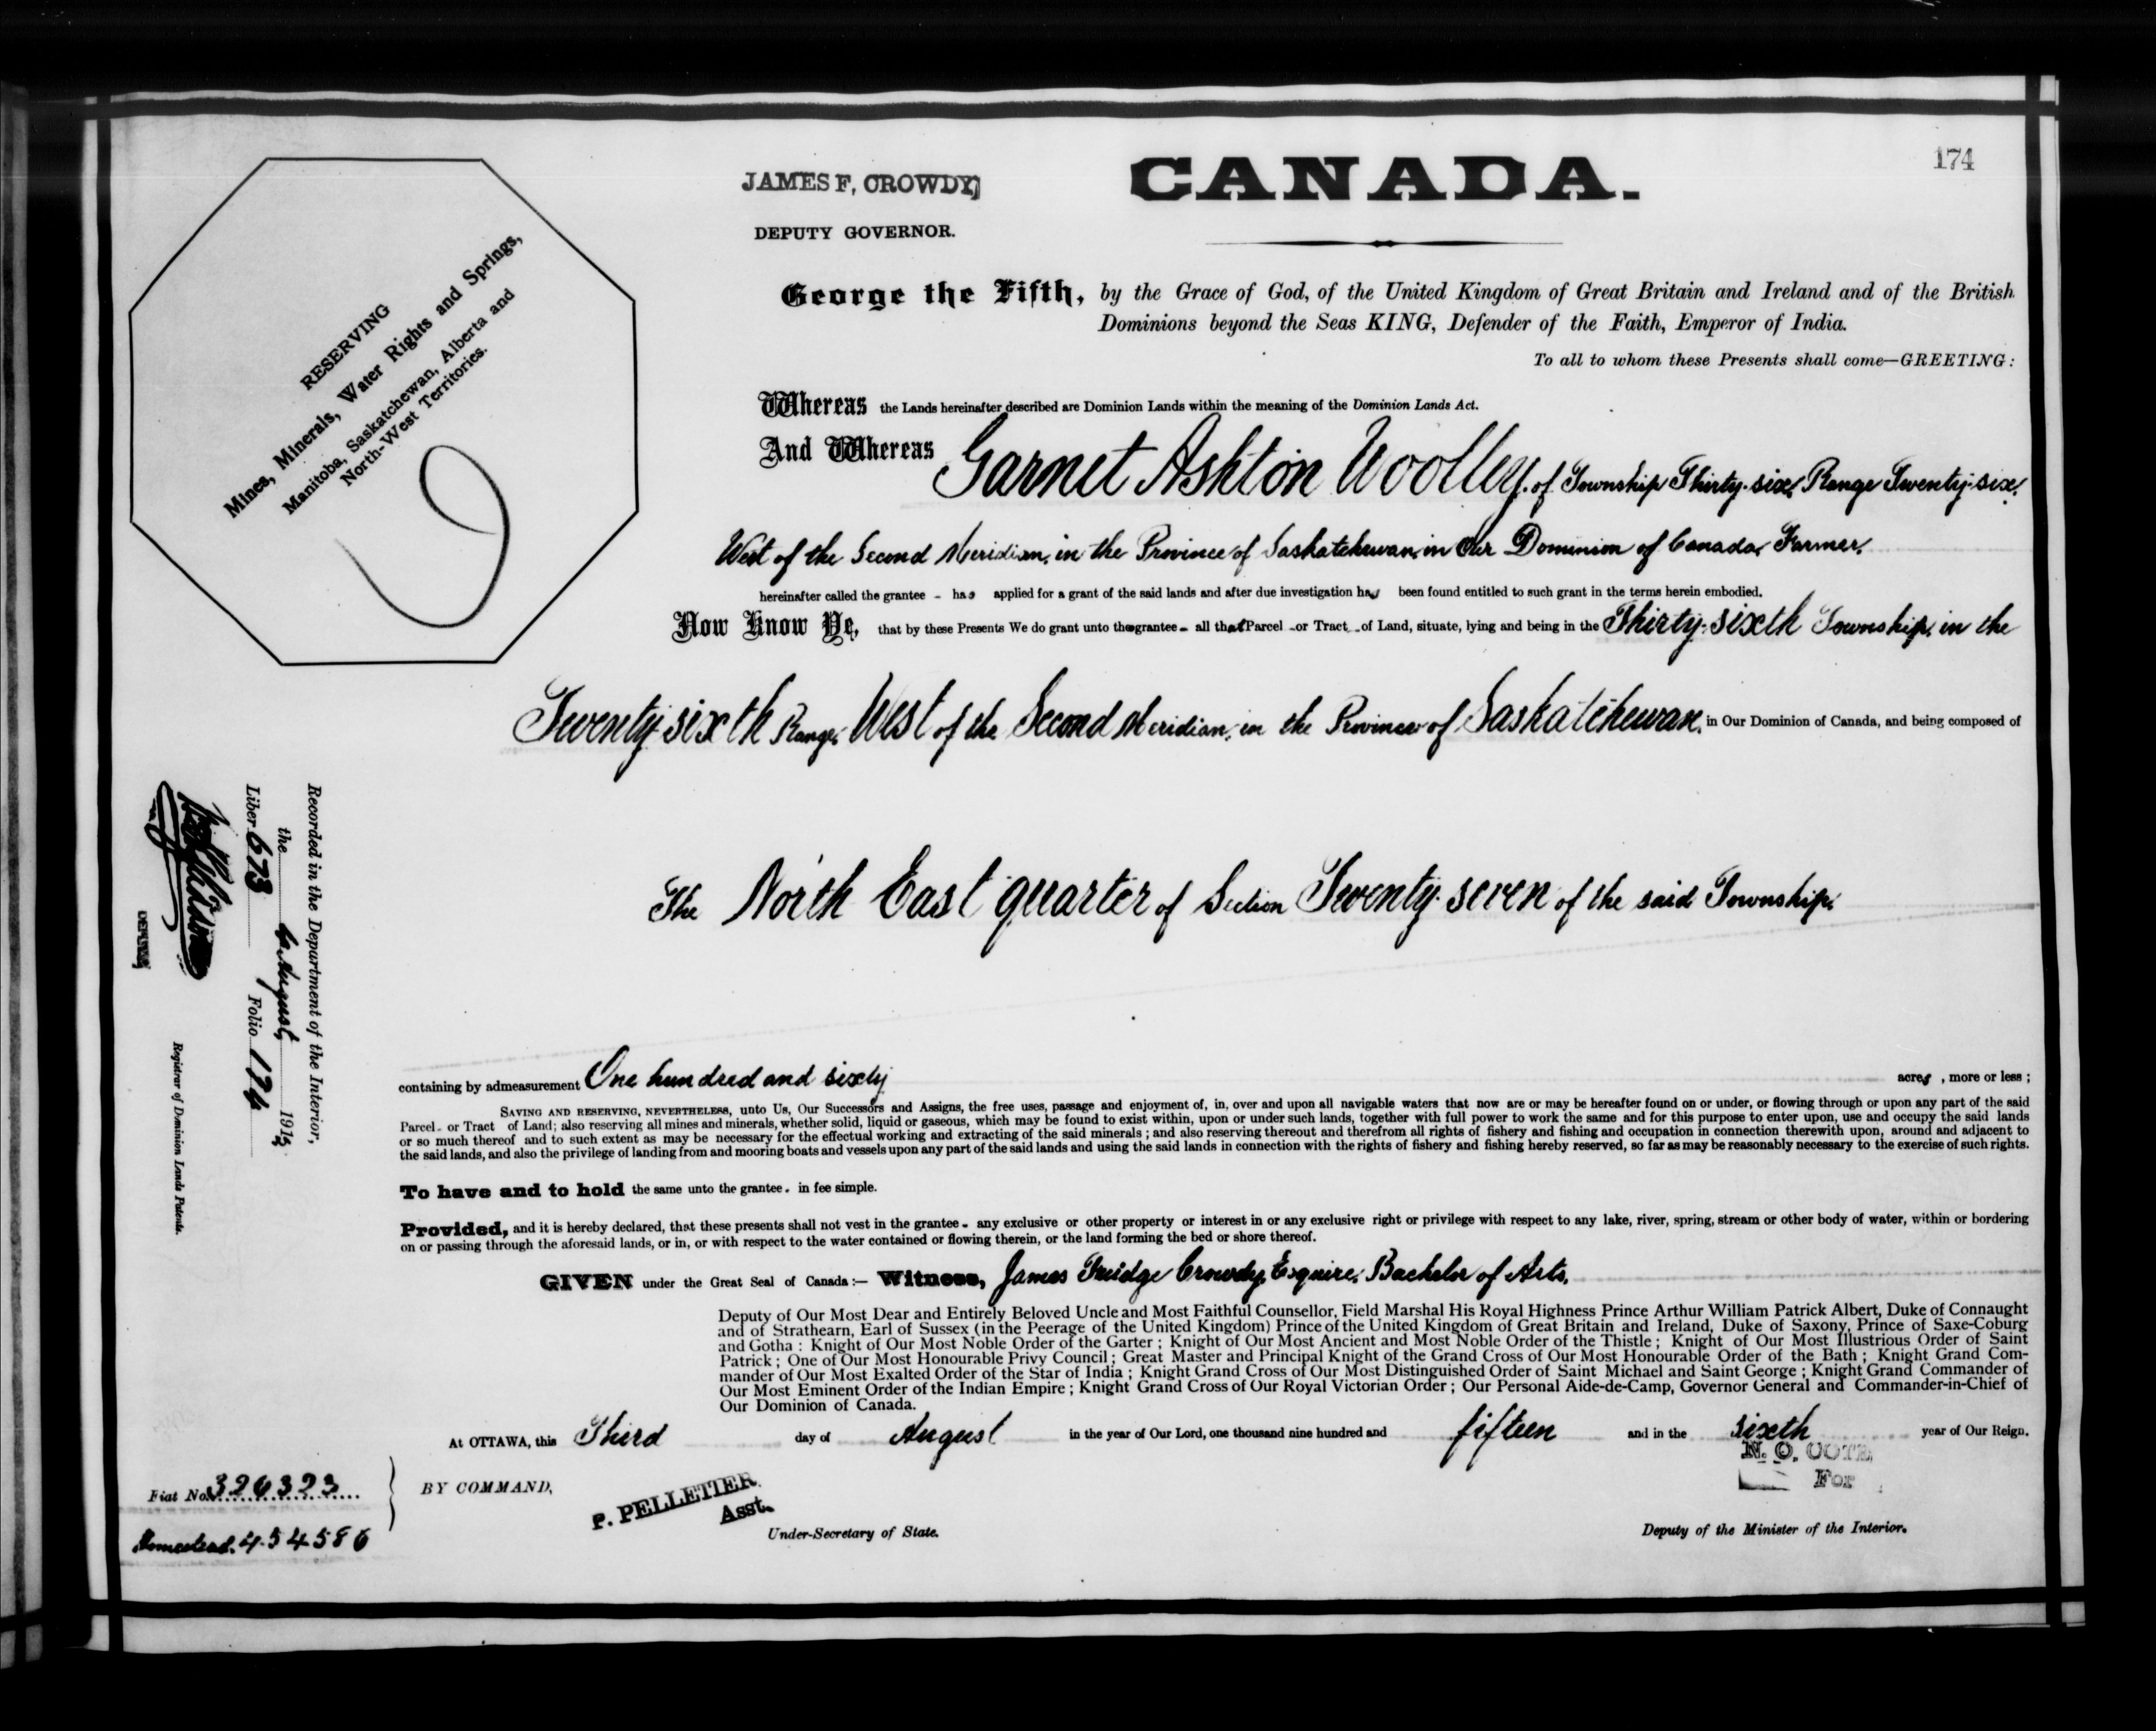 174
JAMES F. CROWDY,
DEPUTY GOVERNOR.
CANADA.
RESERVING
Mines, Minerals, Water Rights and Springs,
Manitoba, Saskatchewan, Alberta and
North-West Territories.
George the Fifth, by the Grace of God, of the United Kingdom of Great Britain and Ireland and of the British
Dominions beyond the Seas KING, Defender of the Faith, Emperor of India.
To all to whom these Presents shall come—GREETING:
Whereas the Lands hereinafter described are Dominion Lands within the meaning of the Dominion Lands Act.
And Whereas Garnet Ashton Woolley, of Township Thirty-six, Range Twenty-six,
West of the Second Meridian, in the Province of Saskatchewan, in Our Dominion of Canada, Farmer,
hereinafter called the grantee - has applied for a grant of the said lands and after due investigation has been found entitled to such grant in the terms herein embodied.
Now Know Ye, that by these Presents We do grant unto the grantee - all that Parcel - or Tract - of Land, situate, lying and being in the Thirty-sixth Township, in the
Twenty-sixth Range, West of the Second Meridian, in the Province of Saskatchewan, in Our Dominion of Canada, and being composed of
The North East quarter of Section Twenty-seven of the said Township,
containing by admeasurement One hundred and sixty acres, more or less;
SAVING AND RESERVING, NEVERTHELESS, unto Us, Our Successors and Assigns, the free uses, passage and enjoyment of, in, over and upon all navigable waters that now are or may be hereafter found on or under, or flowing through or upon any part of the said
Parcel - or Tract of Land; also reserving all mines and minerals, whether solid, liquid or gaseous, which may be found to exist within, upon or under such lands, together with full power to work the same and for this purpose to enter upon, use and occupy the said lands
or so much thereof and to such extent as may be necessary for the effectual working and extracting of the said minerals; and also reserving thereout and therefrom all rights of fishery and fishing and occupation in connection therewith upon, around and adjacent to
the said lands, and also the privilege of landing from and mooring boats and vessels upon any part of the said lands and using the said lands in connection with the rights of fishery and fishing hereby reserved, so far as may be reasonably necessary to the exercise of such rights.
To have and to hold the same unto the grantee - in fee simple.
Provided, and it is hereby declared, that these presents shall not vest in the grantee - any exclusive or other property or interest in or any exclusive right or privilege with respect to any lake, river, spring, stream or other body of water, within or bordering
on or passing through the aforesaid lands, or in, or with respect to the water contained or flowing therein, or the land forming the bed or shore thereof.
GIVEN under the Great Seal of Canada:— Witness, James Fuidge Crowdy, Esquire, Bachelor of Arts,
Deputy of Our Most Dear and Entirely Beloved Uncle and Most Faithful Counsellor, Field Marshal His Royal Highness Prince Arthur William Patrick Albert, Duke of Connaught
and of Strathearn, Earl of Sussex (in the Peerage of the United Kingdom) Prince of the United Kingdom of Great Britain and Ireland, Duke of Saxony, Prince of Saxe-Coburg
and Gotha: Knight of Our Most Noble Order of the Garter; Knight of Our Most Ancient and Most Noble Order of the Thistle; Knight of Our Most Illustrious Order of Saint
Patrick; One of Our Most Honourable Privy Council; Great Master and Principal Knight of the Grand Cross of Our Most Honourable Order of the Bath; Knight Grand Com-
mander of Our Most Exalted Order of the Star of India; Knight Grand Cross of Our Most Distinguished Order of Saint Michael and Saint George; Knight Grand Commander of
Our Most Eminent Order of the Indian Empire; Knight Grand Cross of Our Royal Victorian Order; Our Personal Aide-de-Camp, Governor General and Commander-in-Chief of
Our Dominion of Canada.
At OTTAWA, this Third day of August in the year of Our Lord, one thousand nine hundred and fifteen and in the sixth year of Our Reign.
BY COMMAND,
P. PELLETIER
Asst.
Under-Secretary of State.
N. O. COTE
For
Deputy of the Minister of the Interior.
Fiat No. 326323
Homestead. 454586
Recorded in the Department of the Interior,
the 6 August, 1915
Liber 673 Folio 174
DEPUTY
Registrar of Dominion Lands Patents.